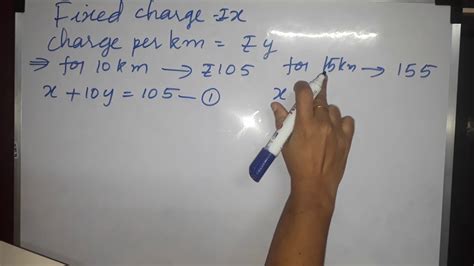 Fixed charge = ₹x
Charge per km = ₹y
⇒ for 10 km → ₹105 for 15km → 155
x + 10y = 105 — ① x